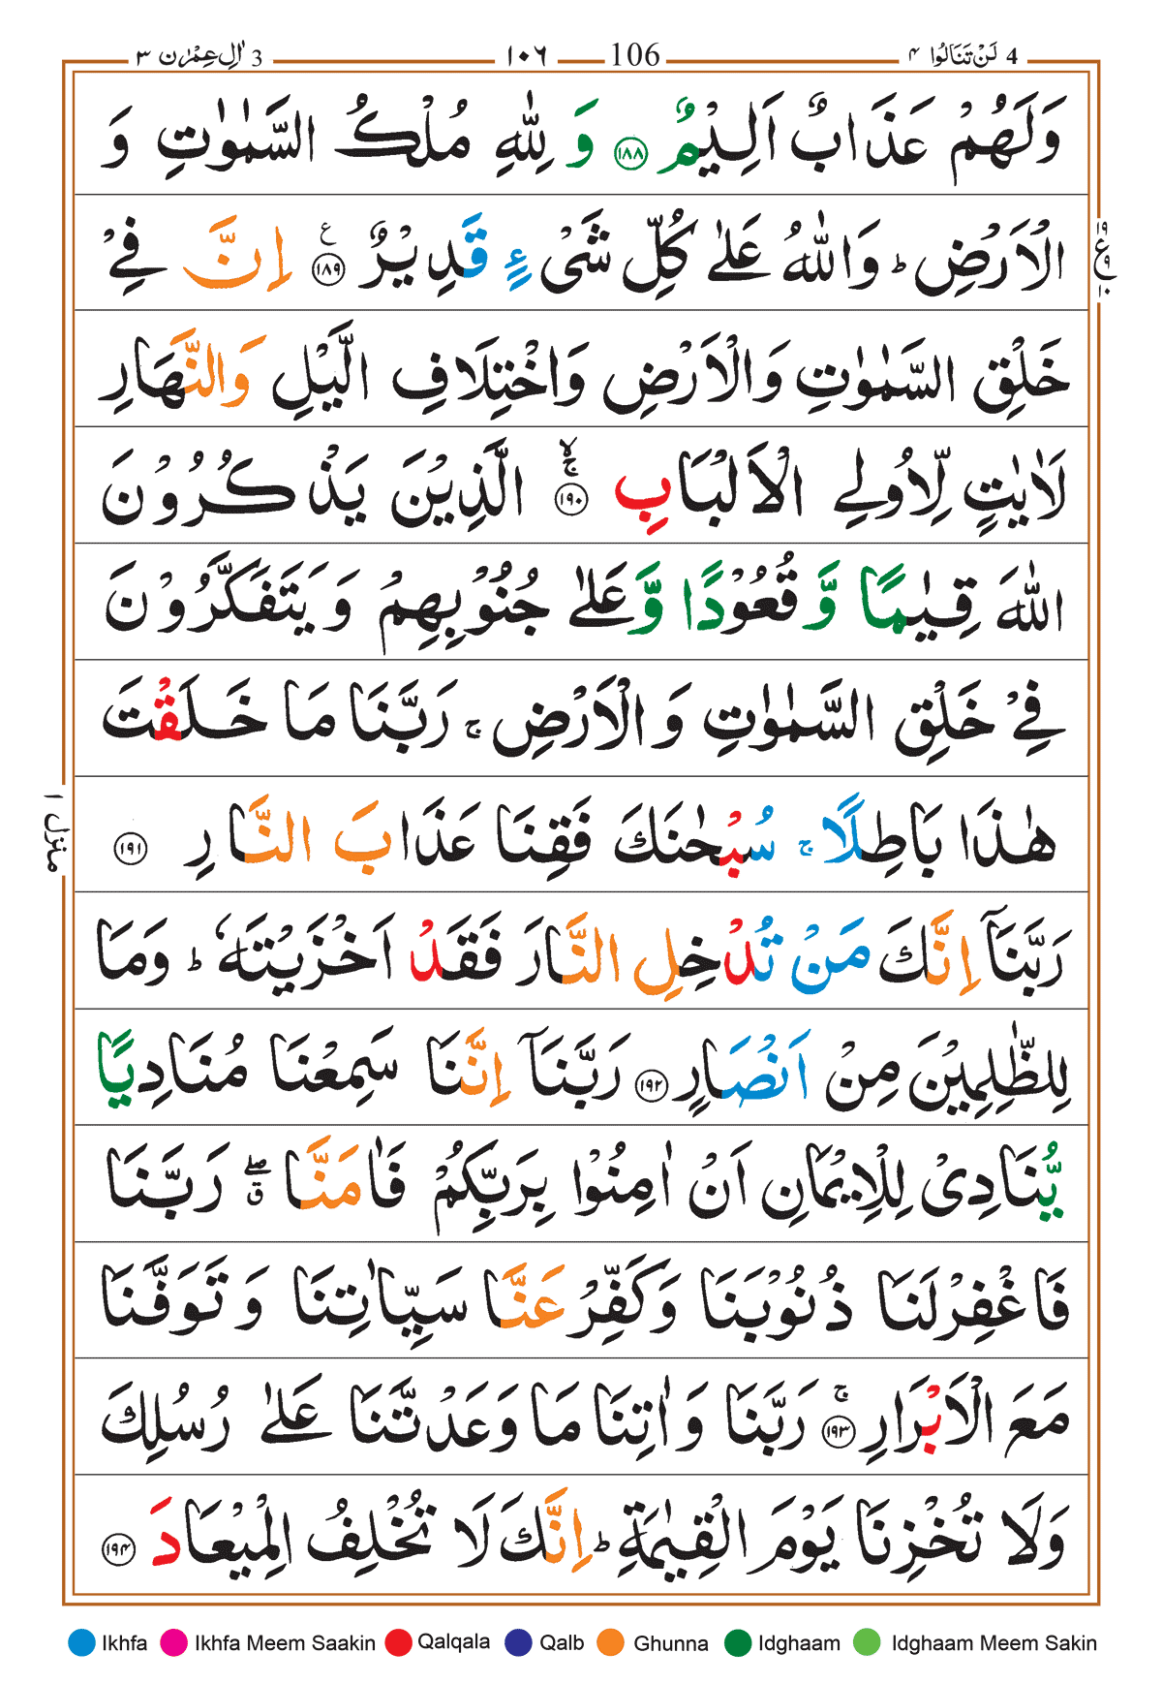 4 لَنْ تَنَالُوا ۴ 106 ١٠٦ 3 اٰلِ عِمْرٰن ٣
وَلَهُمْ عَذَابٌ اَلِيْمٌ ﴿١٨٨﴾ وَ لِلّٰهِ مُلْكُ السَّمٰوٰتِ وَ
الْاَرْضِ ؕ وَاللّٰهُ عَلٰى كُلِّ شَیْءٍ قَدِيْرٌ ﴿١٨٩﴾ ع اِنَّ فِیْ
خَلْقِ السَّمٰوٰتِ وَالْاَرْضِ وَاخْتِلَافِ الَّيْلِ وَالنَّهَارِ
لَاٰيٰتٍ لِّاُولِی الْاَلْبَابِ ﴿١٩٠﴾ ۚۙ الَّذِيْنَ يَذْكُرُوْنَ
اللّٰهَ قِيٰمًا وَّ قُعُوْدًا وَّعَلٰى جُنُوْبِهِمْ وَيَتَفَكَّرُوْنَ
فِیْ خَلْقِ السَّمٰوٰتِ وَ الْاَرْضِ ۚ رَبَّنَا مَا خَلَقْتَ
هٰذَا بَاطِلًا ۚ سُبْحٰنَكَ فَقِنَا عَذَابَ النَّارِ ﴿١٩١﴾
رَبَّنَاۤ اِنَّكَ مَنْ تُدْخِلِ النَّارَ فَقَدْ اَخْزَيْتَهٗ ؕ وَمَا
لِلظّٰلِمِيْنَ مِنْ اَنْصَارٍ ﴿١٩٢﴾ رَبَّنَاۤ اِنَّنَا سَمِعْنَا مُنَادِيًا
يُّنَادِیْ لِلْاِيْمَانِ اَنْ اٰمِنُوْا بِرَبِّكُمْ فَاٰمَنَّا ۖۗ رَبَّنَا
فَاغْفِرْلَنَا ذُنُوْبَنَا وَكَفِّرْ عَنَّا سَيِّاٰتِنَا وَ تَوَفَّنَا
مَعَ الْاَبْرَارِ ﴿١٩٣﴾ ۚ رَبَّنَا وَ اٰتِنَا مَا وَعَدْتَّنَا عَلٰى رُسُلِكَ
وَلَا تُخْزِنَا يَوْمَ الْقِيٰمَةِ ؕ اِنَّكَ لَا تُخْلِفُ الْمِيْعَادَ ﴿١٩٤﴾
منزل ١
Ikhfa Ikhfa Meem Saakin Qalqala Qalb Ghunna Idghaam Idghaam Meem Sakin